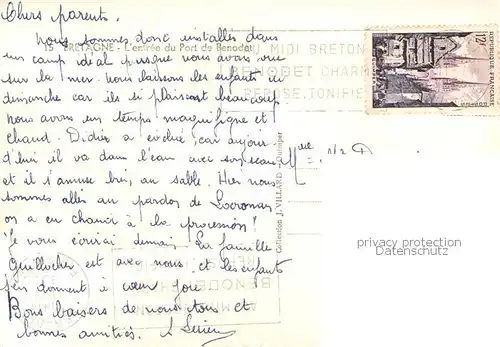 Chers parents.
Nous sommes donc installés dans
un camp idéal puisque nous avons vue
sur la mer. nous laissons les enfants le
dimanche car ils si plaisent beaucoup
nous avons un temps magnifique et
chaud. Didier a évolué, car aujour
d'hui il va dans l'eau avec son seau
et il s'amuse bien, au sable. Hier nous
sommes allés au pardon de Locronan
on a eu chanir à la procession!
Je vous écrirai demain. La famille
est avec nous. et les enfants
s'en donnent à cœur joie.
Bons baisers de nous tous et
bonnes amitiés.
15 BRETAGNE - L'entrée du Port de Benodet
MIDI BRETON
BENODET CHARM
REPOSE, TONIFIE
Collection J. VILLARD, Quimper
12F
REPUBLIQUE FRANÇAISE
QUIMPER
privacy protection
AKPOOL.DE
BENODE